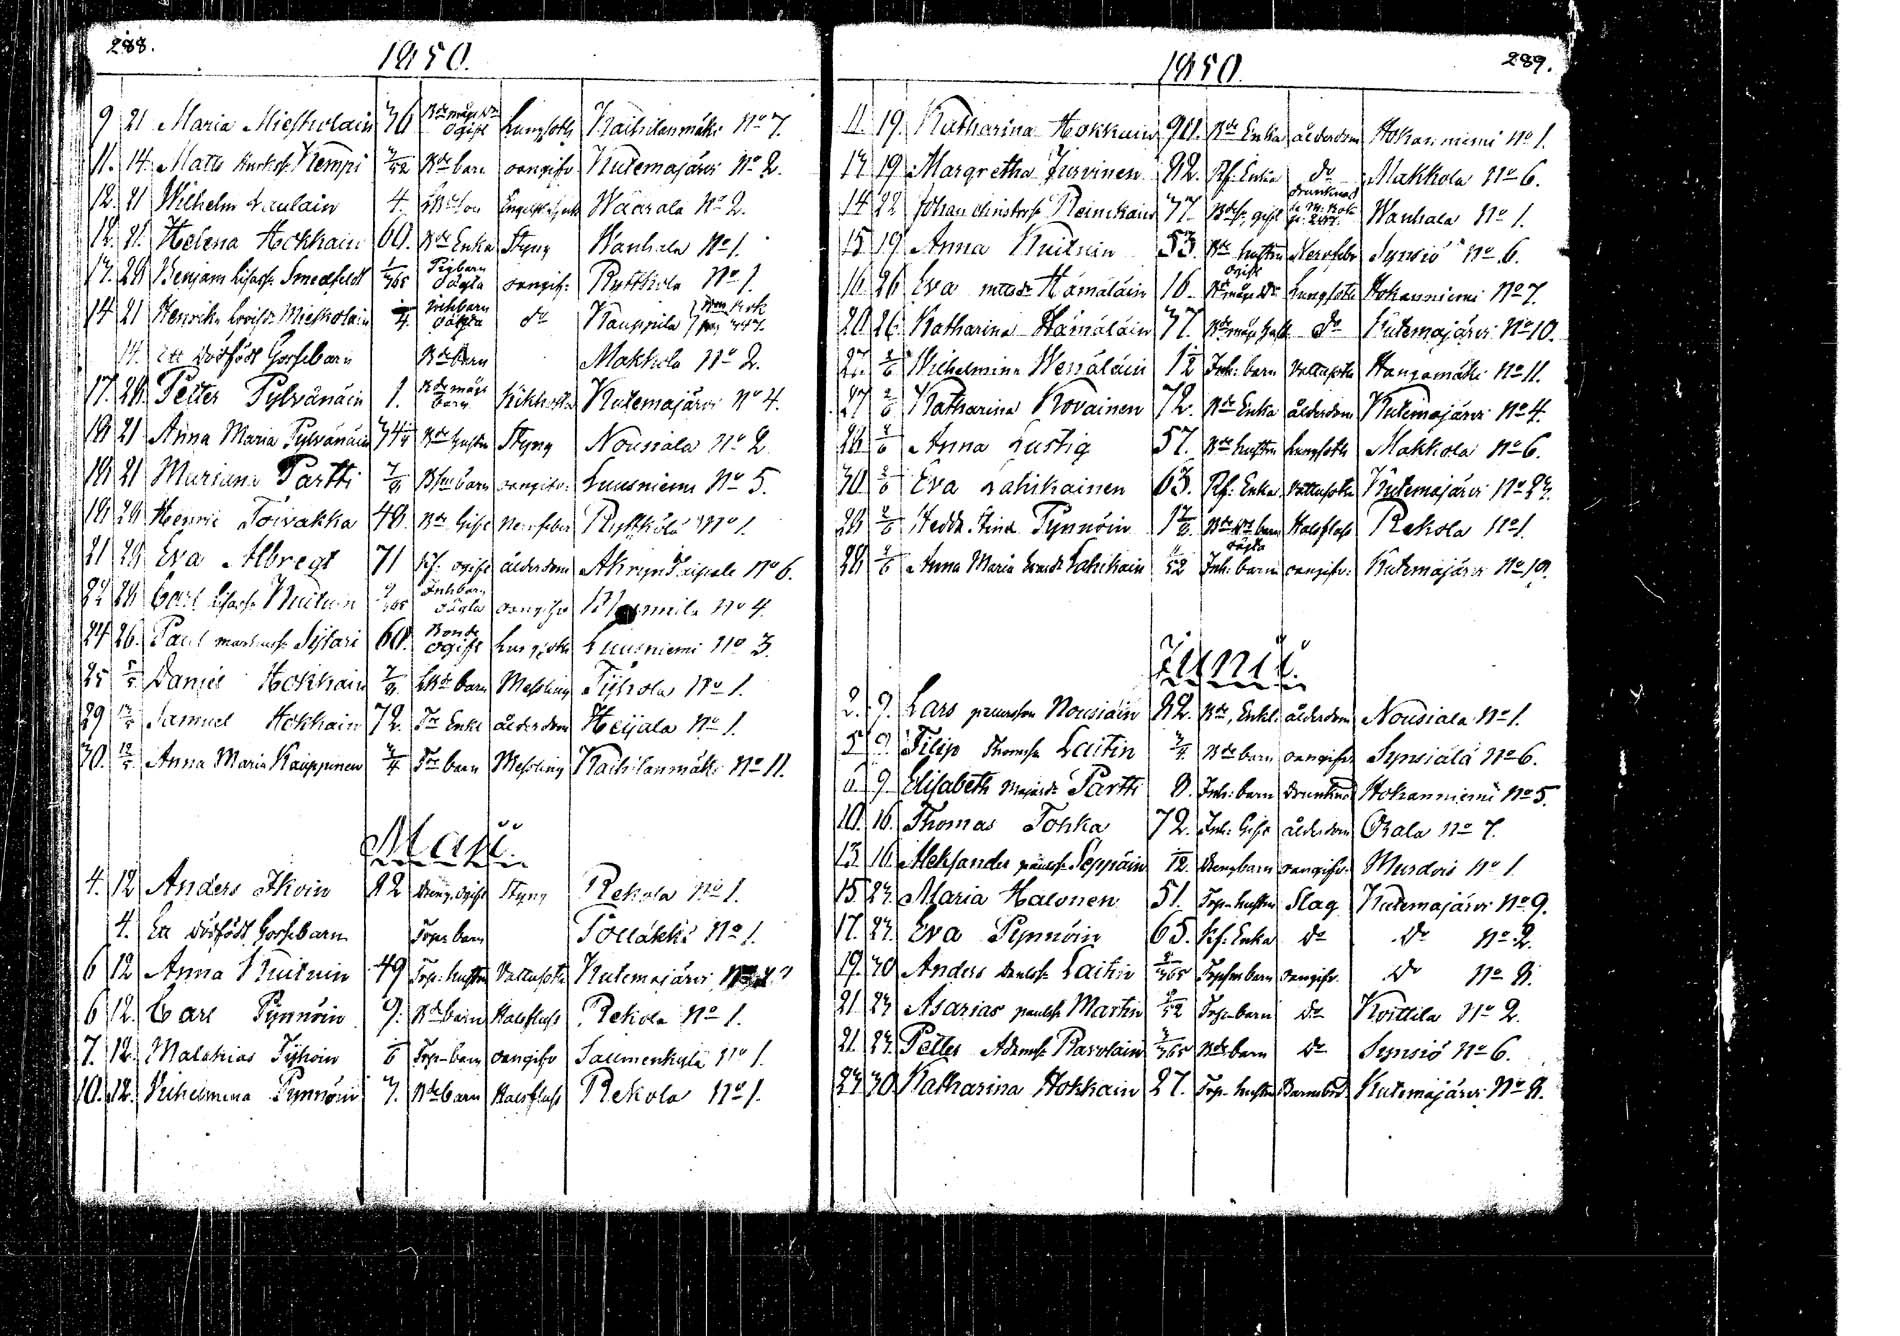 288.
1850.
9 21 Maria Mieskolain 36 Bde måg Dr ogift Lungsoth Kaihilanmäki No 7.
11. 14. Matts Kempi 3/52 Bde barn oangifv Kutemajärvi No 2.
12. 21 Wilhelm Laulain 4. Wäärälä No 2.
12. 21. Helena Hokkain 60. Bde Enka Styng Wanhala No 1.
13. 28 Benjam Smedfeldt 1/365 Pigbarn oägta oangif: Ruttkola No 1.
14 21 Henrik Mieskolain 4. Inhbarn oägta do Kauppila
14. Ett dödfödt Gossebarn Bde barn Makkola No 2.
17. 28. Petter Pylvänäin 1. Bde måg barn Kikhosta Kutemajärvi No 4.
18 21 Anna Maria Pylvänäin 34 Bde hustru Styng Nousiala No 2
18 21 Mariana Partti barn oangifv: Luusniemi No 5.
18 28 Henric Toivakka 48. Bde Gift Nervfeber Ruttkola No 1.
21 28 Eva Albregt 71 ogift ålderdom Akvyn Taipale No 6.
22 28 Carl Kuituin 9/365 Inhbarn oägta oangifv No 4.
24 26. Paul Sytari 60. Bonde ogift Lungsoth Luusniemi No 3.
25 5/5 Daniel Hokkain barn Messling Tyhola No 1.
29 12/5 Samuel Hokkain 72. Enkl ålderdom Heijala No 1.
30. 12/5 Anna Maria Kauppinen 3/4 barn Messling Kaihilanmäki No 11.
Maii
4. 12 Anders Ikoin 22 Dreng. ogift Styng Rekola No 1.
4. Ett dödfödt Gossebarn Torp barn Tölläkkä No 1.
6 12 Anna Kuituin 49 Torp: hustru Vattusoth Kutemajärvi
6 12. Carl Pynnöin 9. Bde barn Halsfluss Rekola No 1.
7. 12. Malakias Tyhoin 1/6 Torp barn oangifv Saumenkylä No 1.
10. 12. Vilhelmina Pynnöin 3. Bde barn Halsfluss Rekola No 1.
289.
1850.
11. 19. Katharina Hokkain 90. Bde Enka ålderdom Hokanniemi No 1.
13 19 Margretha Jurvinen 82. Rf: Enka do Makkola No 6.
14 22 Johan Reinikain 37. gift drunknad Wanhala No 1.
15 19 Anna Kuituin 53. Bde hustru Nervfebr Synsiö No 6.
16 26 Eva Hämäläin 16. ogift Bde måg Dr Lungsoth Hokanniemi No 7.
20 26 Katharina Hämäläin 37. do Kutemajärvi No 10.
27. 2/6 Wilhelmina Wenäläin 1 1/2 Inh: barn Vattusoth Hangamäki No 11.
27 2/6 Katharina Rovainen 72. Bde Enka ålderdom Kutemajärvi No 4.
28 2/6 Anna Lustig 57. Bde hustru Lungsoth Makkola No 6.
30 2/6 Eva Lahikainen 63. Rf: Enka Vattusoth Kutemajärvi No 23.
28 2/6 Hedda Stina Pynnöin barn Halsfluss Rekola No 1.
28 2/6 Anna Maria Lahikain /52 oägta Inh: barn oangifv: Kutemajärvi
Junii.
2. 9. Lars Nousiain 82. Bde, Enkl. ålderdom Nousiala No 1.
5 9. Filip Thomss Laitin 3/4. Bde barn oangifv. Synsiälä No 6.
6. 9. Elisabeth Partti 8. Inh: barn Drunknad Hokanniemi No 5.
10. 16. Thomas Tohka 72. Inh: Gift ålderdom Orala No 7.
13. 16. Aleksander Seppäin /12. Drengbarn oangifv: Murdois No 1.
15. 23. Maria Halonen 51. Torp hustru Slag Kutemajärvi No 9.
17. 23. Eva Pynnöin 65. Rf: Enka do do No 2.
19. 30 Anders Laitin /365 barn oangifv. do No 8.
21. 23 Asarias Martin /52 Torp barn do Kvittila No 2.
21. 23. Petter Adamss Ravolain /365 Bde barn do Synsiö No 6.
23. 30. Katharina Hokkain 27. Torp hustru Barnsbörd Kutemajärvi No 8.